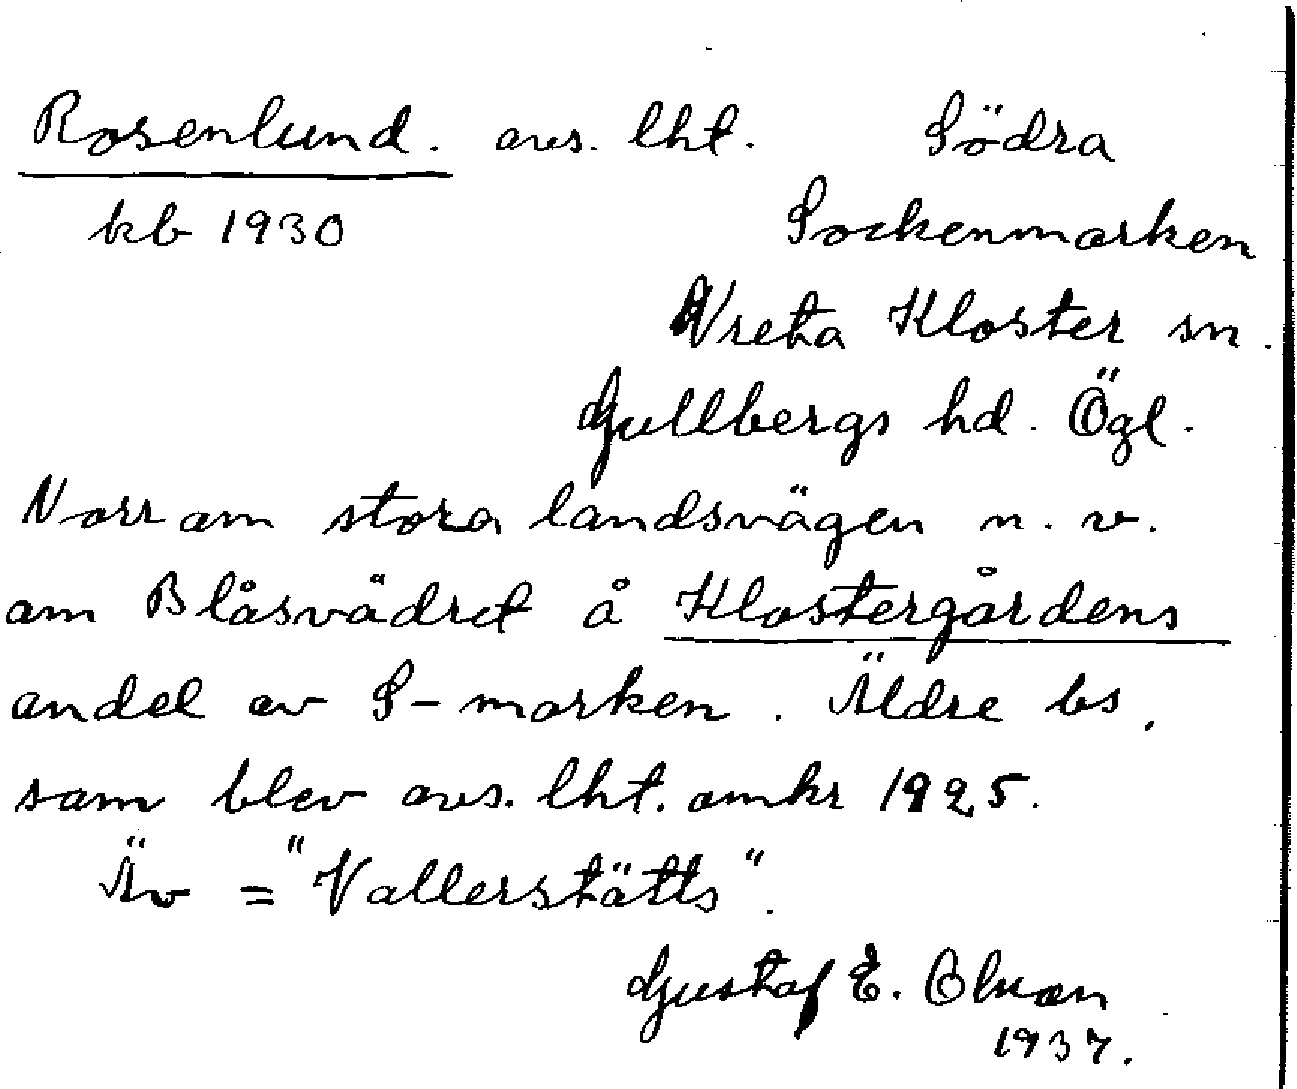 Rosenlund. avs. lht. Södra
kb 1930 Sockenmarken
Vreta Kloster sn.
Gullbergs hd. Ögl.
Norr om stora landsvägen n. v.
om Blåsvädret å Klostergårdens
andel av S-marken. Äldre bs,
som blev avs. lht. omkr 1925.
Äv = "Vallerstätts".
Gustaf E. Olsson
1937.